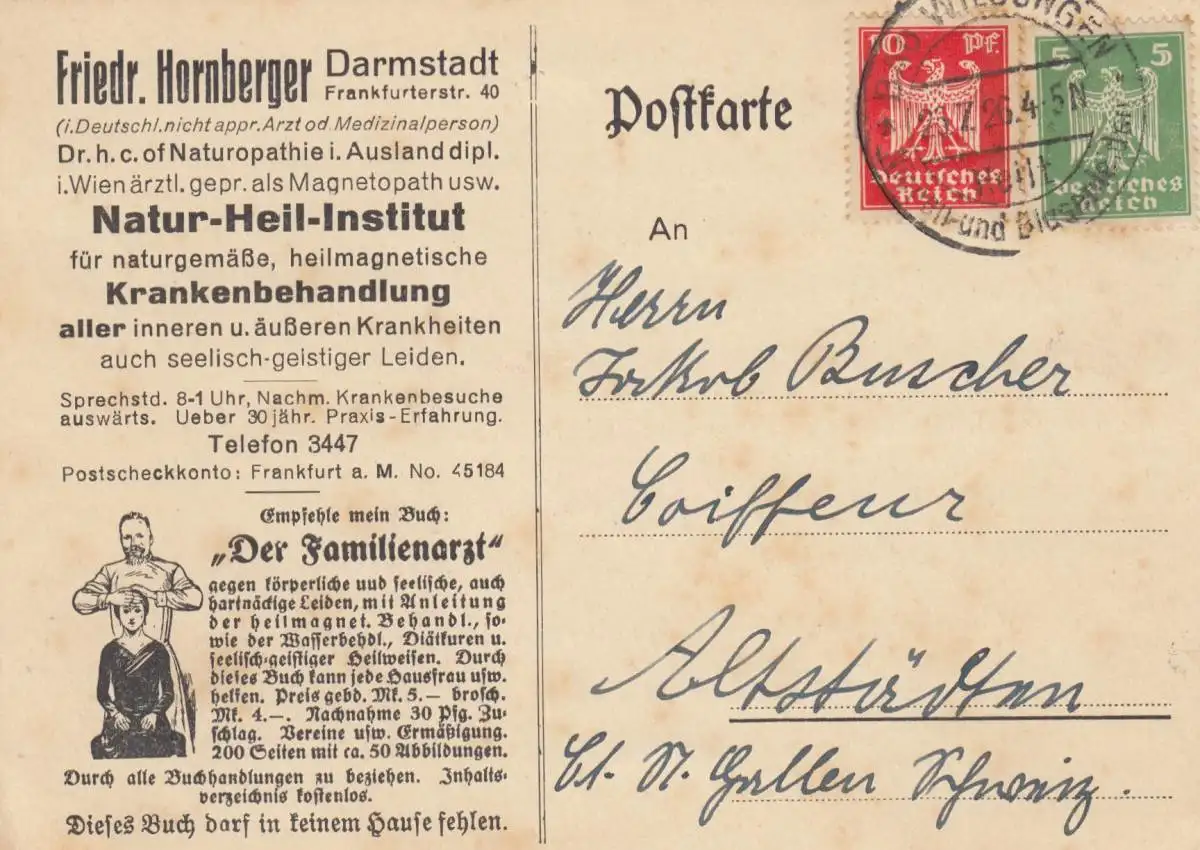 Friedr. Hornberger Darmstadt
Frankfurterstr. 40
(i. Deutschl. nicht appr. Arzt od. Medizinalperson)
Dr. h. c. of Naturopathie i. Ausland dipl.
i. Wien ärztl. gepr. als Magnetopath usw.
Natur-Heil-Institut
für naturgemäße, heilmagnetische
Krankenbehandlung
aller inneren u. äußeren Krankheiten
auch seelisch-geistiger Leiden.
Sprechstd. 8-1 Uhr, Nachm. Krankenbesuche
auswärts. Ueber 30 jähr. Praxis-Erfahrung.
Telefon 3447
Postscheckkonto: Frankfurt a. M. No. 45184
Empfehle mein Buch:
„Der Familienarzt“
gegen körperliche uud seelische, auch
hartnäckige Leiden, mit Anleitung
der heilmagnet. Behandl., so-
wie der Wasserbehdl., Diätkuren u.
seelisch-geistiger Heilweisen. Durch
dieses Buch kann jede Hausfrau usw.
helfen. Preis gebd. Mk. 5.— brosch.
Mk. 4.—. Nachnahme 30 Pfg. Zu-
schlag. Vereine usw. Ermäßigung.
200 Seiten mit ca. 50 Abbildungen.
Durch alle Buchhandlungen zu beziehen. Inhalts-
verzeichnis kostenlos.
Dieses Buch darf in keinem Hause fehlen.
Postkarte
10 Pf.
Deutsches
Reich
5 5
Deutsches
Reich
WILDUNGEN
26.4-5N
und
An
Herrn
Jakob Buscher
Coiffeur
Altstädten
Ct. St. Gallen Schweiz.